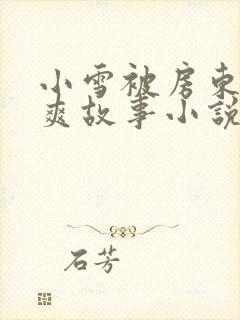 小雪被房东
爽故事小說
石芳